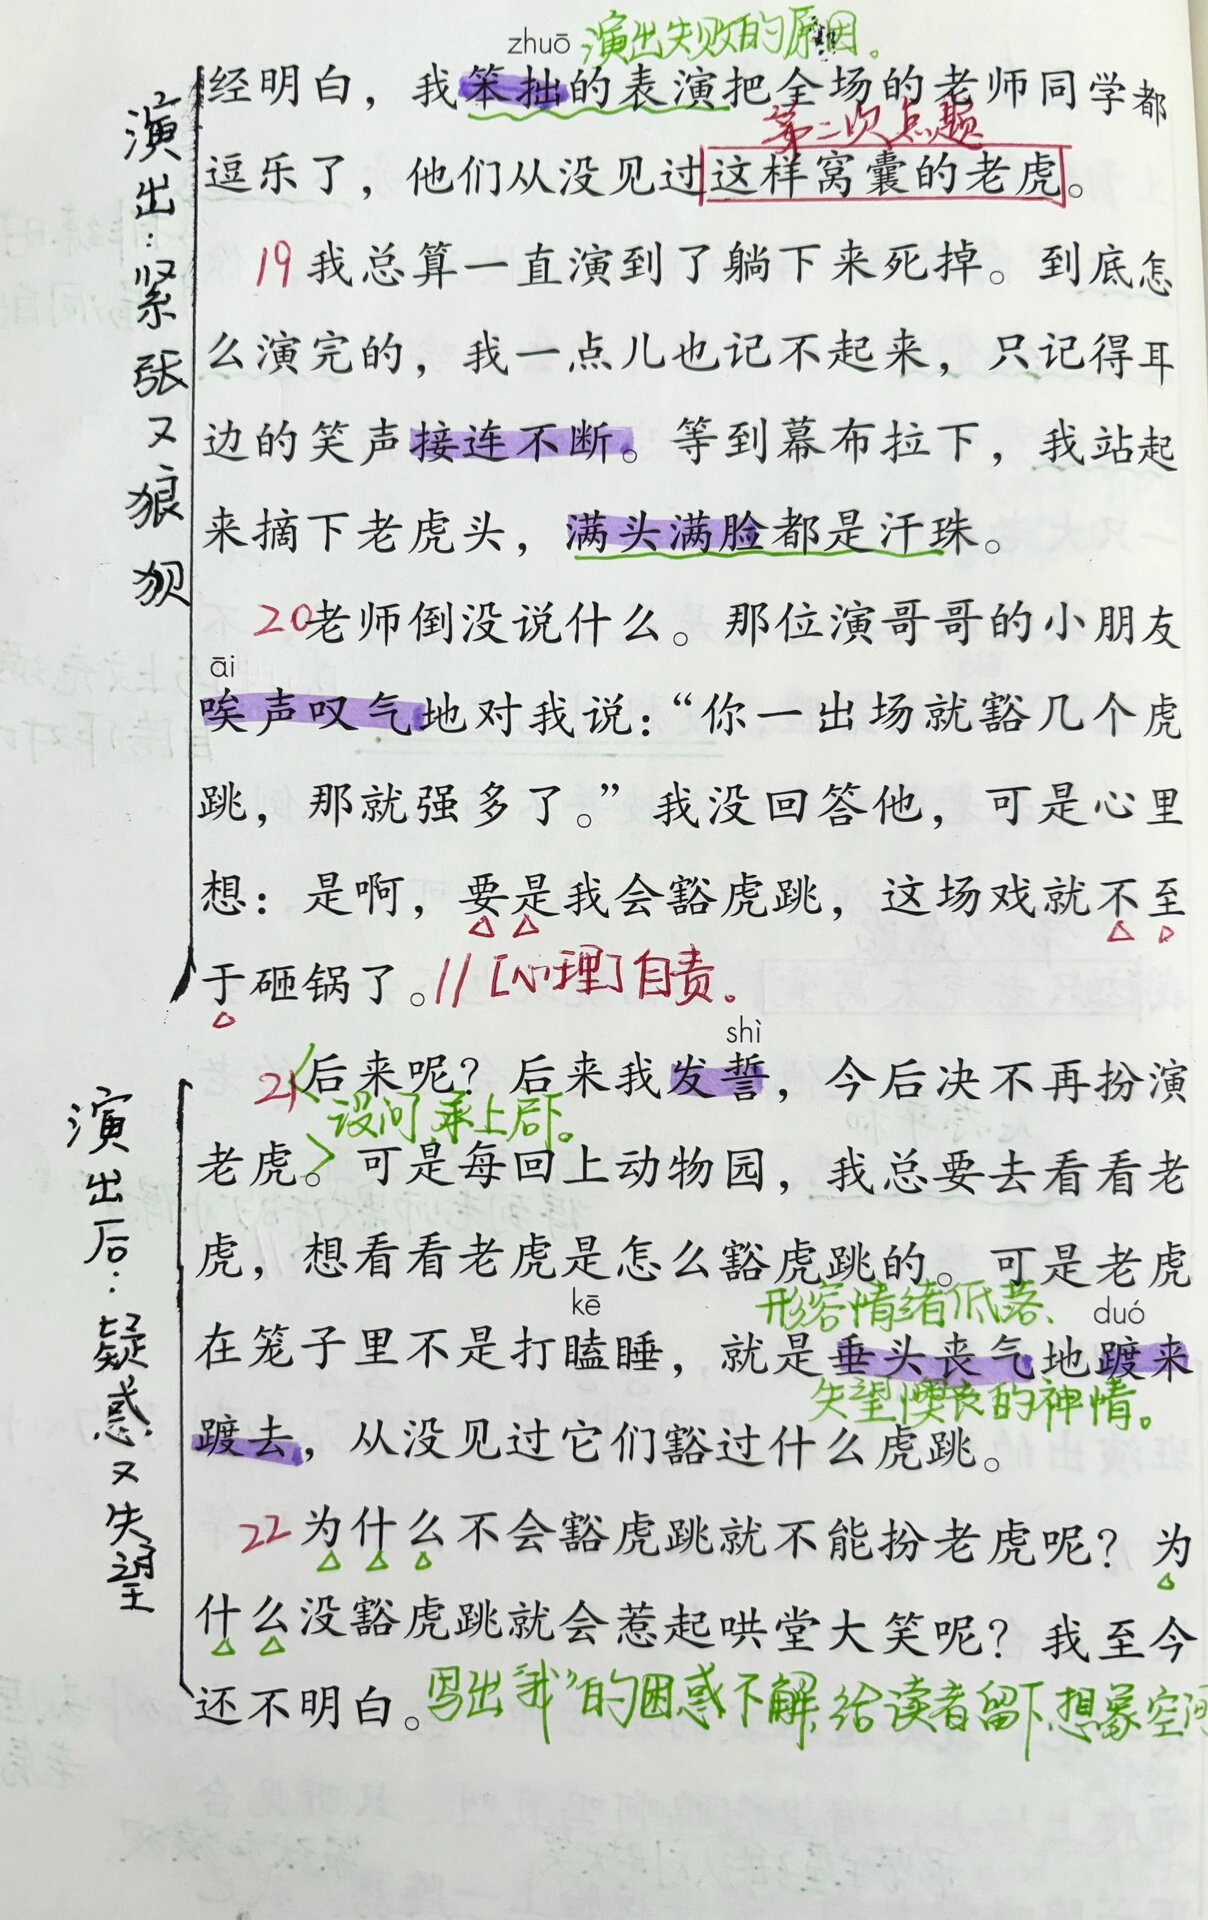 zhuō 演出失败的原因。
经明白，我笨拙的表演把全场的老师同学都
第二次点题
逗乐了，他们从没见过这样窝囊的老虎。
演出：紧张又狼狈
19我总算一直演到了躺下来死掉。到底怎
么演完的，我一点儿也记不起来，只记得耳
边的笑声接连不断。等到幕布拉下，我站起
来摘下老虎头，满头满脸都是汗珠。
20老师倒没说什么。那位演哥哥的小朋友
āi
唉声叹气地对我说：“你一出场就豁几个虎
跳，那就强多了。”我没回答他，可是心里
想：是啊，要是我会豁虎跳，这场戏就不至
于砸锅了。//[心理]自责。
shì
21〈后来呢？后来我发誓，今后决不再扮演
设问 承上启下。
老虎。〉可是每回上动物园，我总要去看看老
虎，想看看老虎是怎么豁虎跳的。可是老虎
kē 形容情绪低落、 duó
在笼子里不是打瞌睡，就是垂头丧气地踱来
失望懊丧的神情。
踱去，从没见过它们豁过什么虎跳。
演出后：疑惑又失望
22为什么不会豁虎跳就不能扮老虎呢？为
什么没豁虎跳就会惹起哄堂大笑呢？我至今
还不明白。写出“我”的困惑不解，给读者留下想象空间